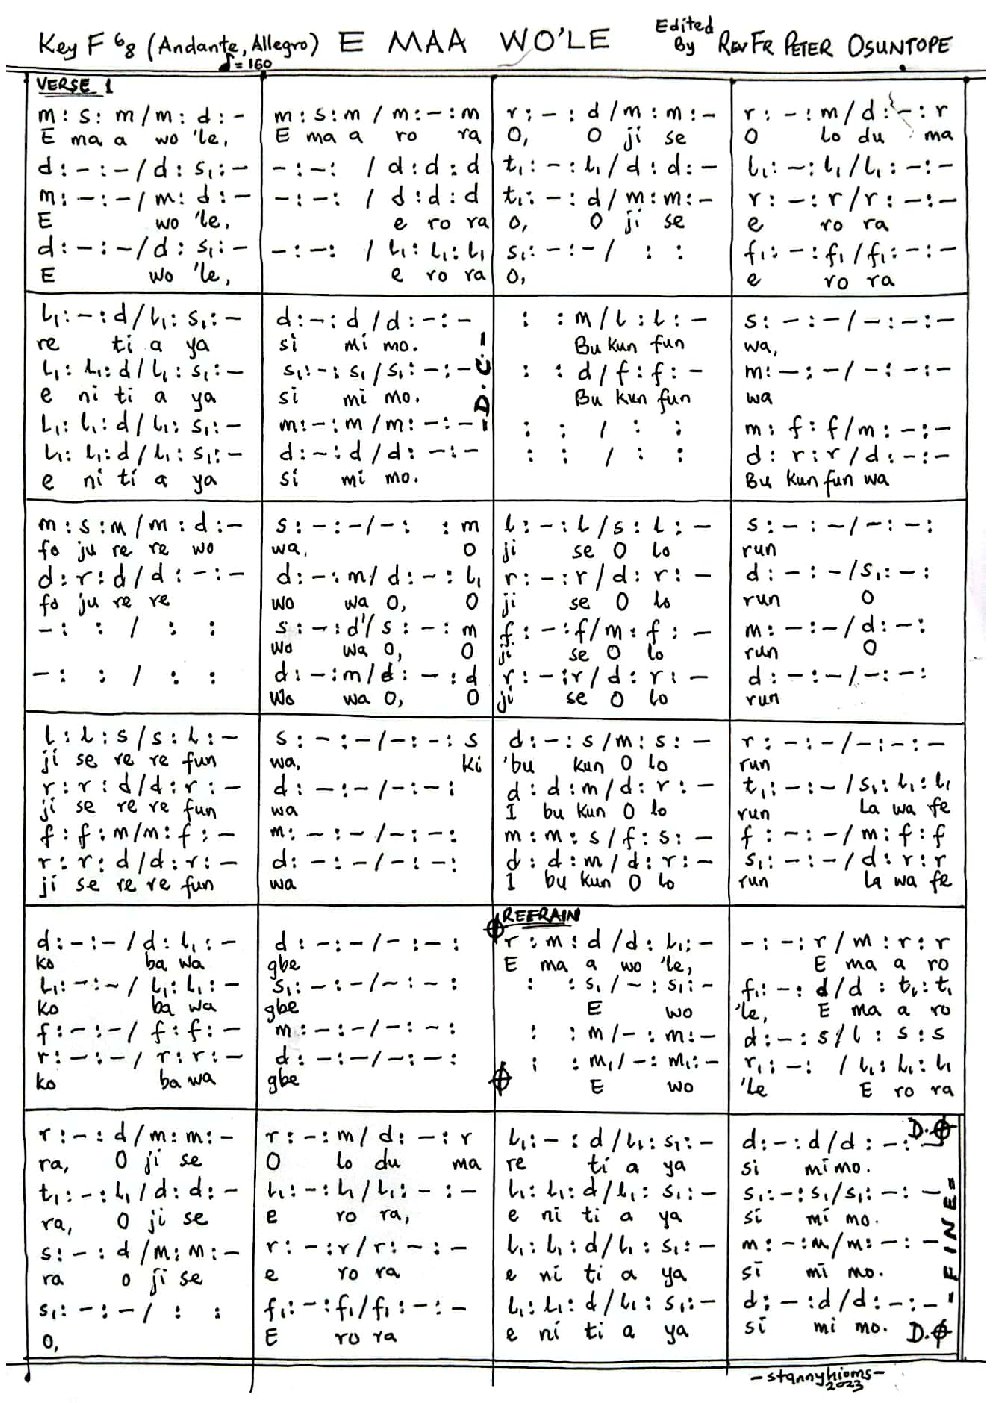 Key F 6/8 (Andante, Allegro) E MAA WO'LE Edited By REV FR PETER OSUNTOPE
♩=160
VERSE 1
m : s : m / m : d : -
E ma a wo 'le,
d : - : - / d : s₁ : -
m : - : - / m : d : -
E wo 'le,
d : - : - / d : s₁ : -
E wo 'le,
m : s : m / m : - : m
E ma a ro ra
- : - : / d : d : d
- : - : / d : d : d
e ro ra
- : - : / l₁ : l₁ : l₁
e ro ra
r : - : d / m : m : -
O, O ji se
t₁ : - : l₁ / d : d : -
t₁ : - : d / m : m : -
O, O ji se
s₁ : - : - / : :
O,
r : - : m / d : - : r
O lo du ma
l₁ : - : l₁ / l₁ : - : -
r : - : r / r : - : -
e ro ra
f₁ : - : f₁ / f₁ : - : -
e ro ra
l₁ : - : d / l₁ : s₁ : -
re ti a ya
l₁ : l₁ : d / l₁ : s₁ : -
e ni ti a ya
l₁ : l₁ : d / l₁ : s₁ : -
l₁ : l₁ : d / l₁ : s₁ : -
e ni ti a ya
d : - : d / d : - : -
si mi mo.
s₁ : - : s₁ / s₁ : - : -
si mi mo.
m : - : m / m : - : -
d : - : d / d : - : -
si mi mo.
-D.C.-
: : m / l : l : -
Bu kun fun
: : d / f : f : -
Bu kun fun
: : / : :
: : / : :
s : - : - / - : - : -
wa,
m : - : - / - : - : -
wa
m : f : f / m : - : -
d : r : r / d : - : -
Bu kun fun wa
m : s : m / m : d : -
fo ju re re wo
d : r : d / d : - : -
fo ju re re
- : : / : :
- : : / : :
s : - : - / - : : m
wa, O
d : - : m / d : - : l₁
wo wa O, O
s : - : d' / s : - : m
wo wa O, O
d : - : m / d : - : d
wo wa O, O
l : - : l / s : l : -
ji se O lo
r : - : r / d : r : -
ji se O lo
f : - : f / m : f : -
ji se O lo
r : - : r / d : r : -
ji se O lo
s : - : - / - : - :
run
d : - : - / s₁ : - :
run O
m : - : - / d : - :
run O
d : - : - / - : - :
run
l : l : s / s : l : -
ji se re re fun
r : r : d / d : r : -
ji se re re fun
f : f : m / m : f : -
r : r : d / d : r : -
ji se re re fun
s : - : - / - : - : s
wa, ki
d : - : - / - : - :
wa
m : - : - / - : - :
d : - : - / - : - :
wa
d : - : s / m : s : -
'bu kun O lo
d : d : m / d : r : -
I bu kun O lo
m : m : s / f : s : -
d : d : m / d : r : -
I bu kun O lo
r : - : - / - : - : -
run
t₁ : - : - / s₁ : l₁ : l₁
run La wa fe
f : - : - / m : f : f
s₁ : - : - / d : r : r
run la wa fe
d : - : - / d : l₁ : -
ko ba wa
l₁ : - : - / l₁ : l₁ : -
ko ba wa
f : - : - / f : f : -
r : - : - / r : r : -
ko ba wa
d : - : - / - : - :
gbe
s₁ : - : - / - : - :
gbe
m : - : - / - : - :
d : - : - / - : - :
gbe
REFRAIN
r : m : d / d : l₁ : -
E ma a wo 'le,
: : s₁ / - : s₁ : -
E wo
: : m / - : m : -
: : m₁ / - : m₁ : -
E wo
- : - : r / m : r : r
E ma a ro
f₁ : - : d / d : t₁ : t₁
'le, E ma a ro
d : - : s / l : s : s
r₁ : - : / l₁ : l₁ : l₁
'le E ro ra
r : - : d / m : m : -
ra, O ji se
t₁ : - : l₁ / d : d : -
ra, O ji se
s : - : d / m : m : -
ra o ji se
s₁ : - : - / : :
O,
r : - : m / d : - : r
O lo du ma
l₁ : - : l₁ / l₁ : - : -
e ro ra,
r : - : r / r : - : -
e ro ra
f₁ : - : f₁ / f₁ : - : -
E ro ra
l₁ : - : d / l₁ : s₁ : -
re ti a ya
l₁ : l₁ : d / l₁ : s₁ : -
e ni ti a ya
l₁ : l₁ : d / l₁ : s₁ : -
e ni ti a ya
l₁ : l₁ : d / l₁ : s₁ : -
e ni ti a ya
D.𝄌
d : - : d / d : - : -
si mi mo.
s₁ : - : s₁ / s₁ : - : -
si mi mo.
m : - : m / m : - : -
si mi mo.
d : - : d / d : - : -
si mi mo. D.𝄌
-FINE=
-stannyhioms-
2023